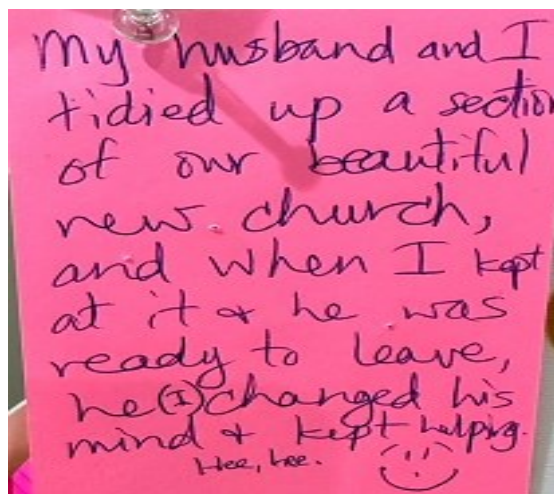 My husband and I
tidied up a section
of our beautiful
new church,
and when I kept
at it & he was
ready to leave,
he (I) changed his
mind & kept helping.
Hee, hee.